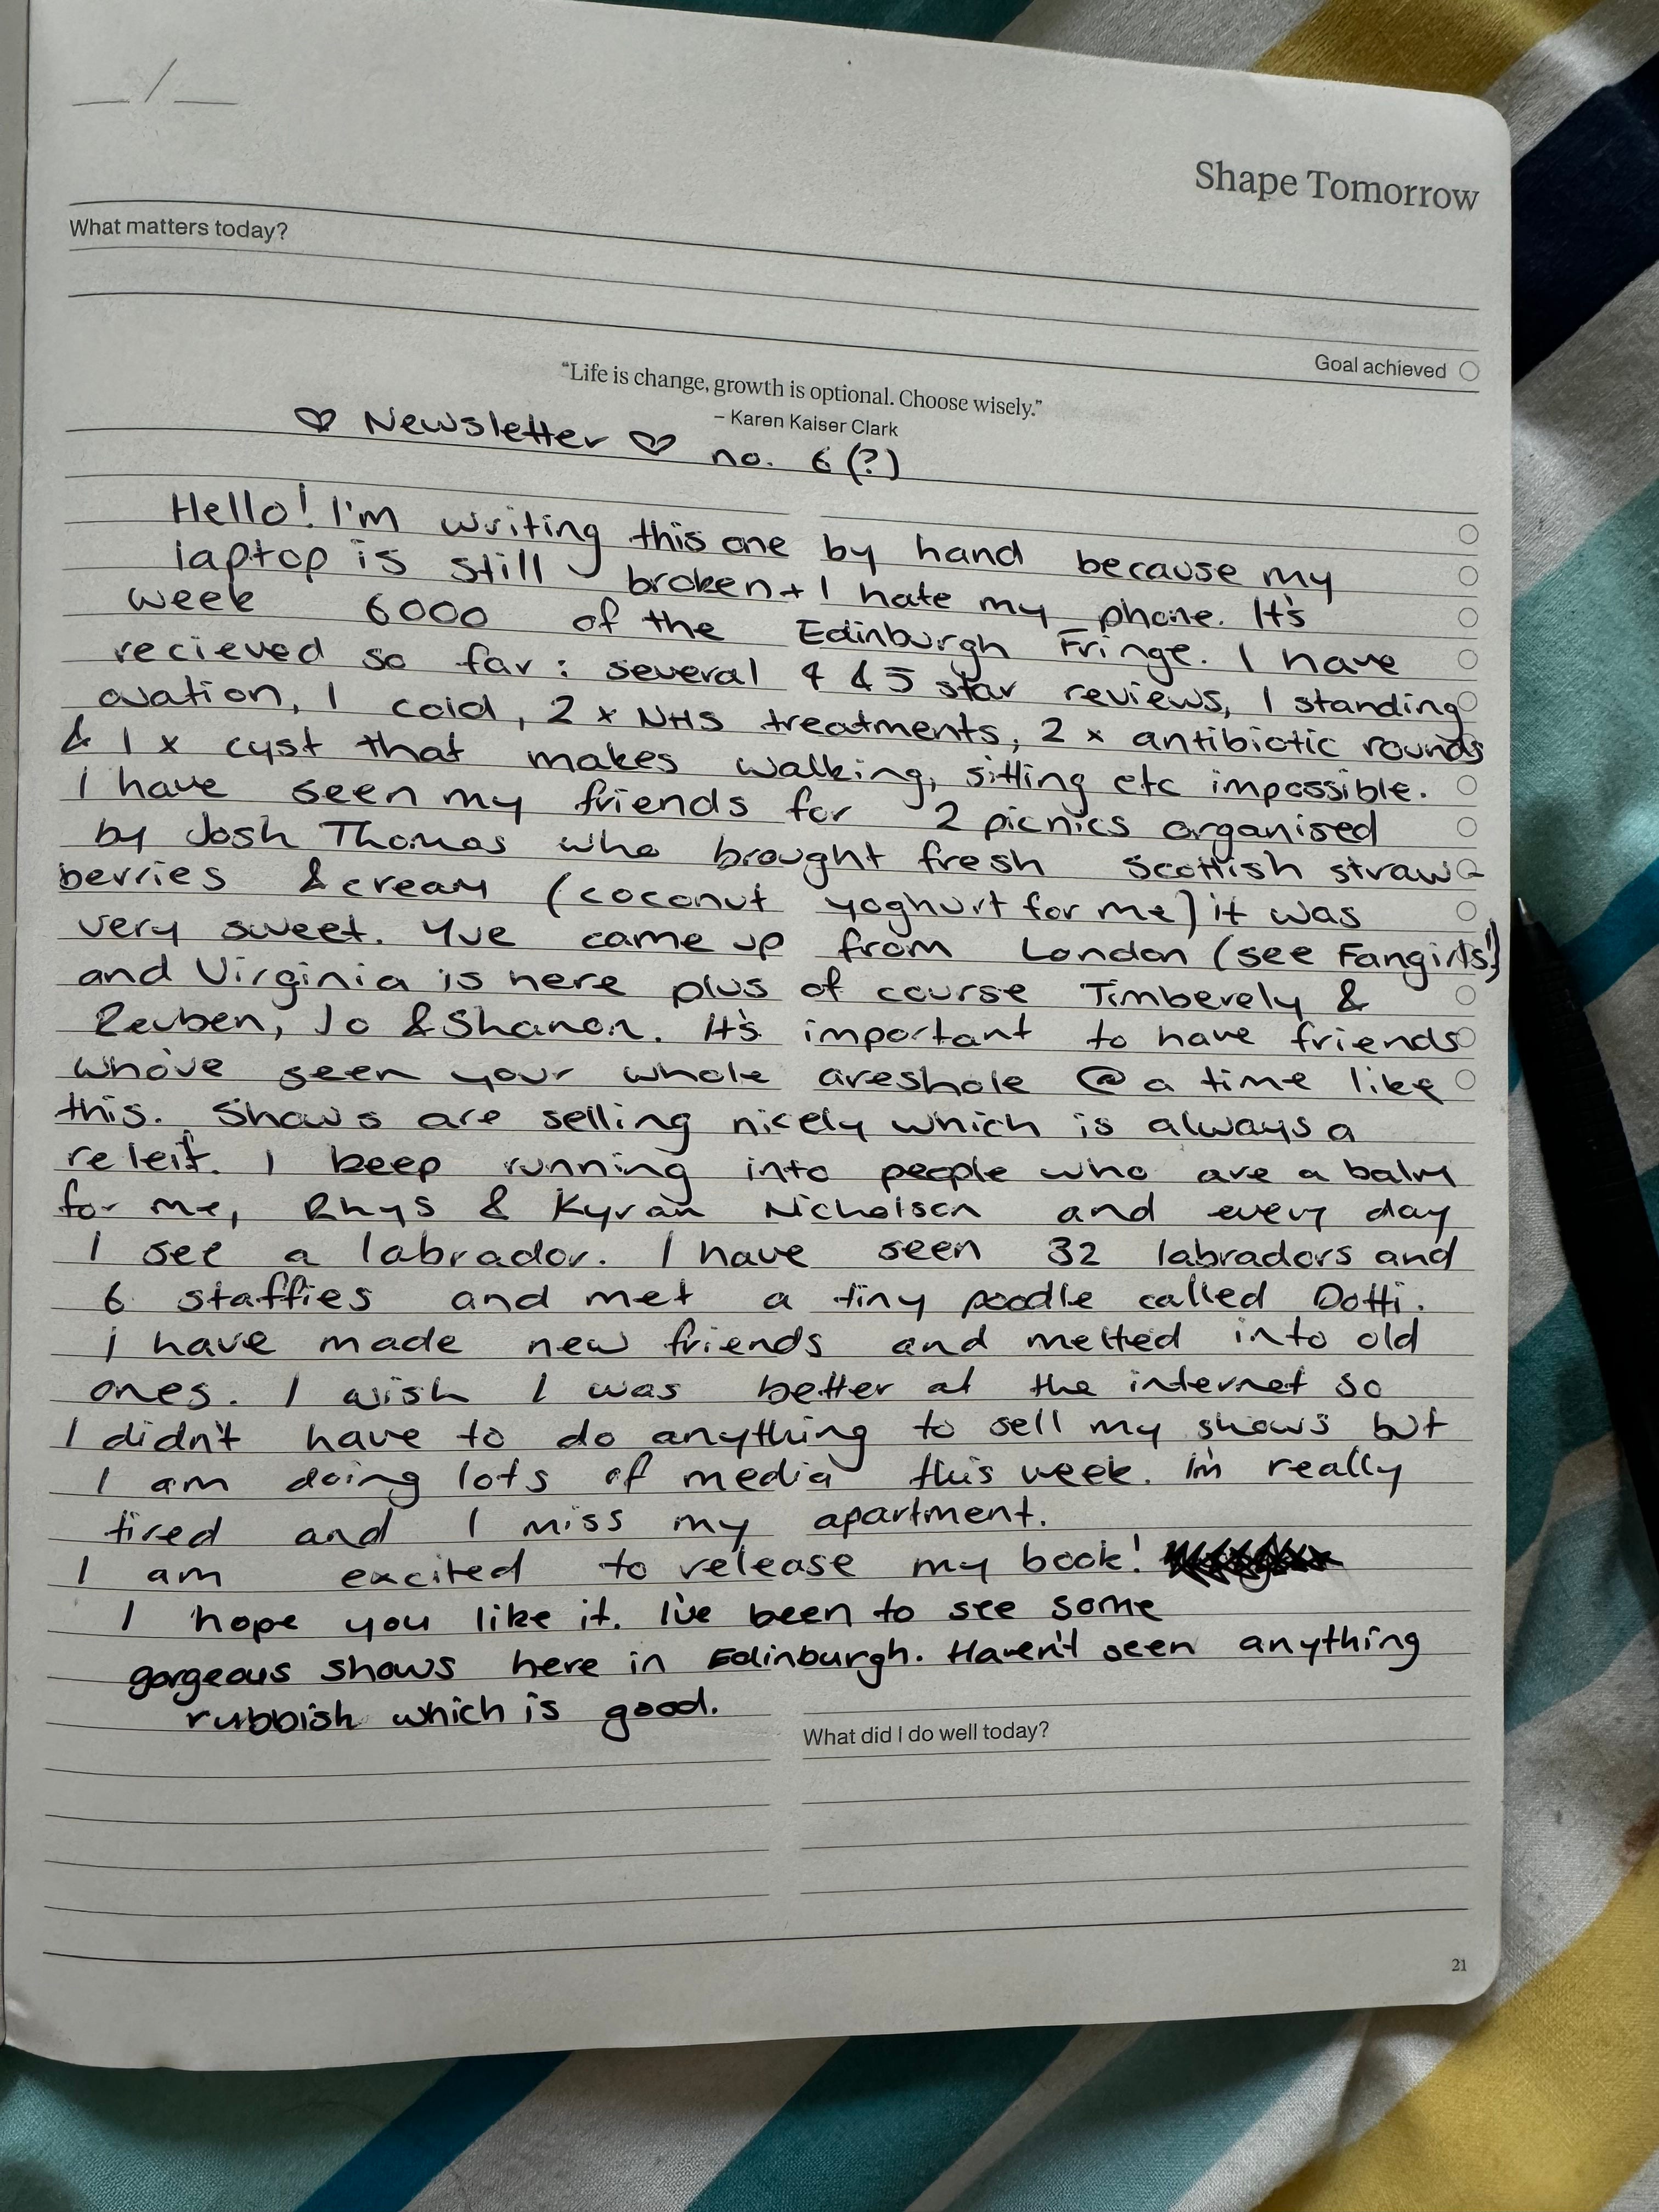 __/__
Shape Tomorrow
What matters today?
Goal achieved
"Life is change, growth is optional. Choose wisely."
– Karen Kaiser Clark
♡ Newsletter ♡ no. 6 (?)
Hello! I'm writing this one by hand because my
laptop is still broken + I hate my phone. It's
week 6000 of the Edinburgh Fringe. I have
recieved so far: several 4 & 5 star reviews, 1 standing
ovation, 1 cold, 2 x NHS treatments, 2 x antibiotic rounds
& 1 x cyst that makes walking, sitting etc impossible.
I have seen my friends for 2 picnics organised
by Josh Thomas who brought fresh Scottish straw-
berries & cream (coconut yoghurt for me) it was
very sweet. Yve came up from London (see Fangirls!)
and Virginia is here plus of course Timberely &
Reuben, Jo & Shanon. It's important to have friends
who've seen your whole areshole @ a time like
this. Shows are selling nicely which is always a
releif. I keep running into people who are a balm
for me, Rhys & Kyran Nicholson and every day
I see a labrador. I have seen 32 labradors and
6 staffies and met a tiny poodle called Dotti.
I have made new friends and melted into old
ones. I wish I was better at the internet so
I didn't have to do anything to sell my shows but
I am doing lots of media this week. I'm really
tired and I miss my apartment.
I am excited to release my book!
I hope you like it. I've been to see some
gorgeous shows here in Edinburgh. Haven't seen anything
rubbish which is good.
What did I do well today?
21